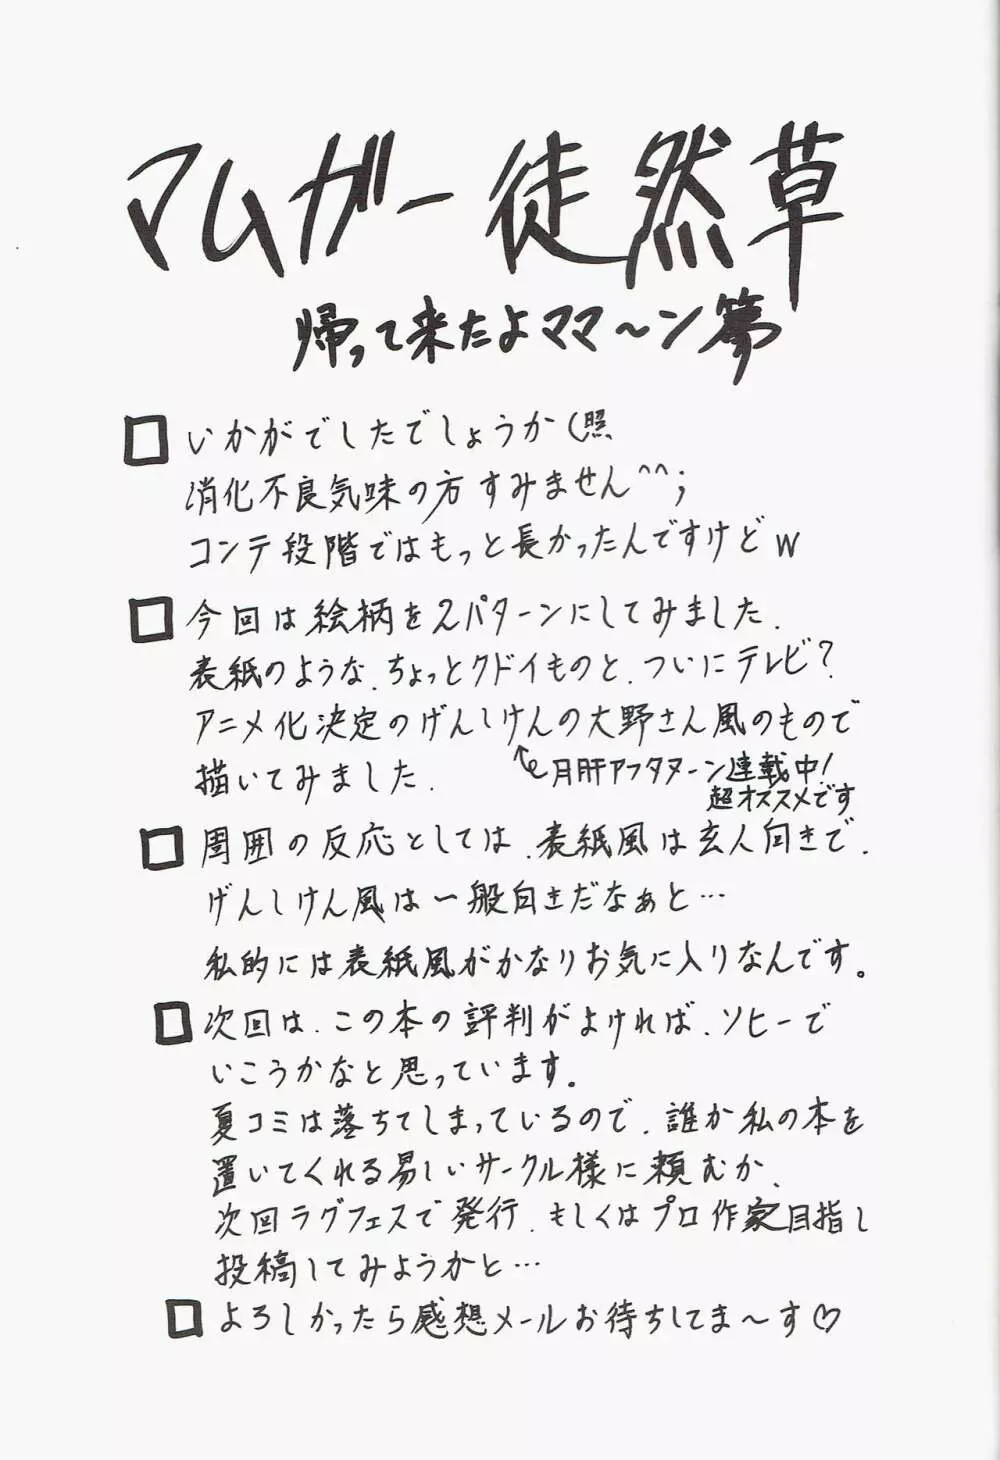 マムガー徒然草
帰って来たよママ〜ン夢
□いかがでしたでしょうか(照
消化不良気味の方すみません^^;
コンテ段階ではもっと長かったんですけどw
□今回は絵柄を2パターンにしてみました.
表紙のような.ちょっとクドイものと.ついにテレビ?
アニメ化決定のげんしけんの大野さん風のもので
描いてみました.
月刊アフタヌーン連載中!
超オススメです
□周囲の反応としては.表紙風は玄人向きで.
げんしけん風は一般向きだなぁと…
私的には表紙風がかなりお気に入りなんです。
□次回は.この本の評判がよければ.ソヒーで
いこうかなと思っています.
夏コミは落ちてしまっているので.誰か私の本を
置いてくれる易しいサークル様に頼むか.
次回ラグフェスで発行.もしくはプロ作家目指し
投稿してみようかと…
□よろしかったら感想メールお待ちしてま〜す♡